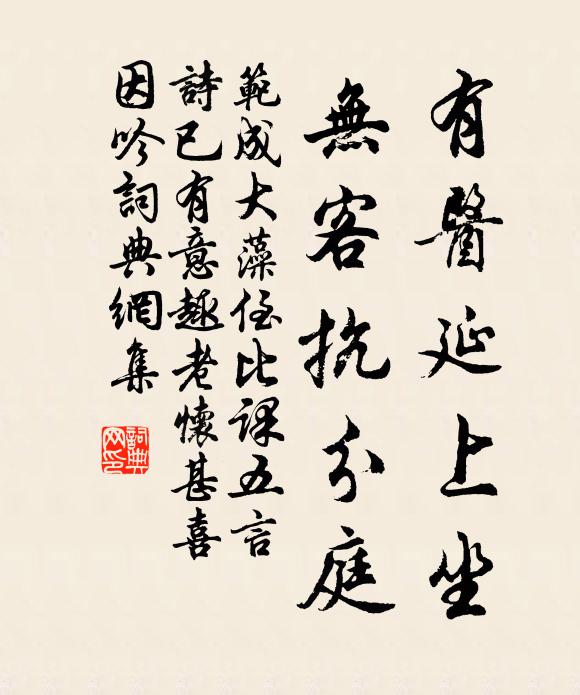 有醫延上坐
無客抗分庭
範成大藻侄比課五言
詩已有意趣老懷甚喜
因吟詞典網集
詞典網印